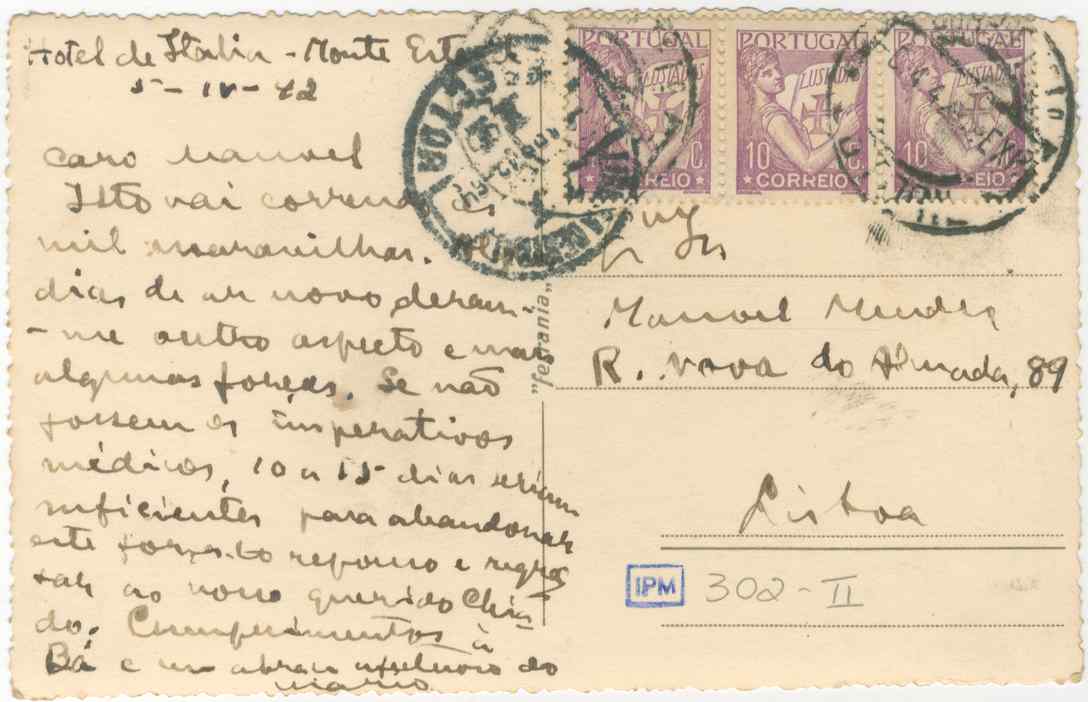 Hotel de Italia - Monte Estoril
5-IV-42
Caro Manuel
Isto vai correndo às
mil maravilhas. Alguns
dias de ar novo deram-
-me outro aspecto e mais
algumas forças. Se não
fossem os imperativos
médicos, 10 a 15 dias seriam
suficientes para abandonar
este forçado repouso e regres
sar ao nosso querido Chia-
do. Cumprimentos à
Bá e um abraço afectuoso do
Mário
"ferrania"
PORTUGAL
LUSIADAS
C.
CORREIO
PORTUGAL
LUSIADAS
10 C.
CORREIO
PORTUGAL
LUSIADAS
10
CORREIO
Manuel Mendes
R. Nova do Almada, 89
Lisboa
IPM 302-II